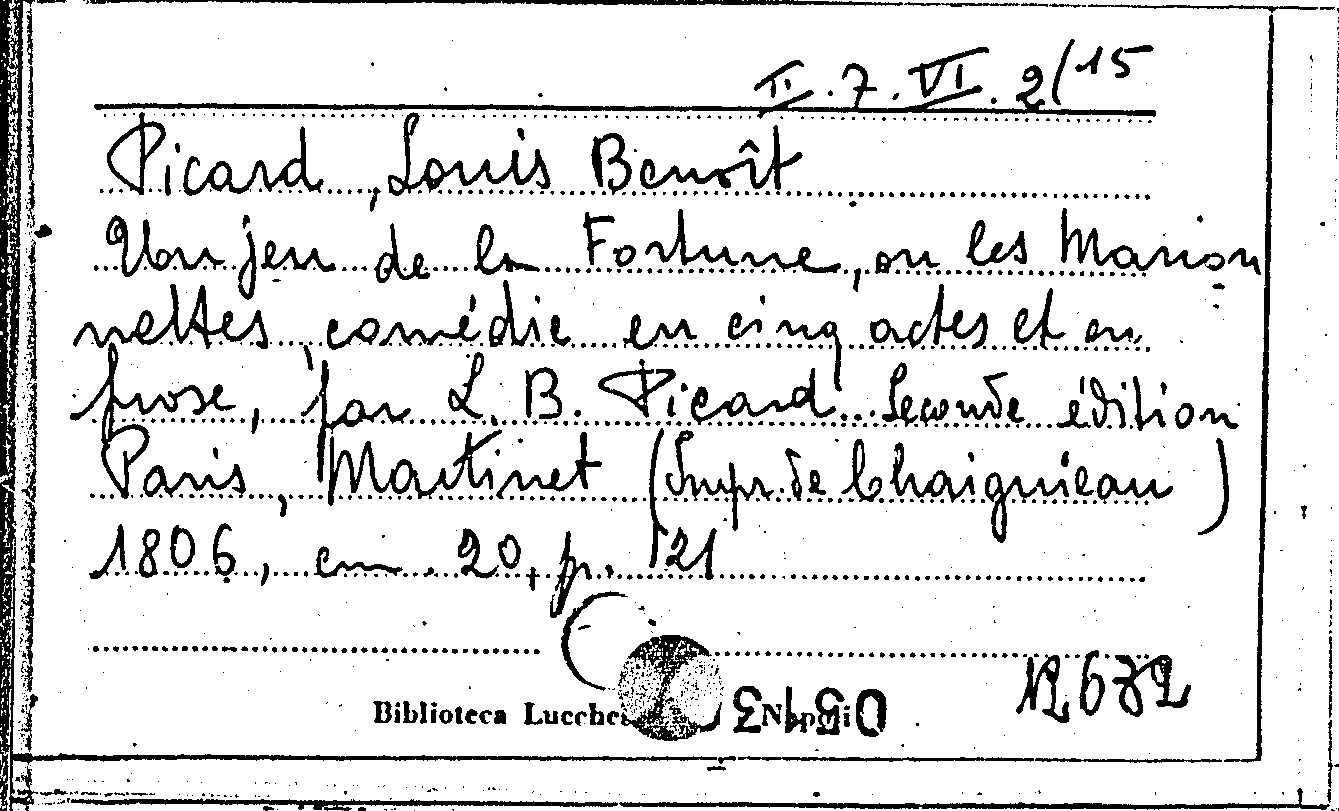 II. 7. VI. 2/15
Picard, Louis Benoît
Un jeu de la Fortune, ou les Marion
nettes, comédie en cinq actes et en
prose, par L. B. Picard. Seconde édition
Paris, Martinet (Impr. de Chaignieau)
1806, cm. 20, p. 121
Biblioteca Napoli